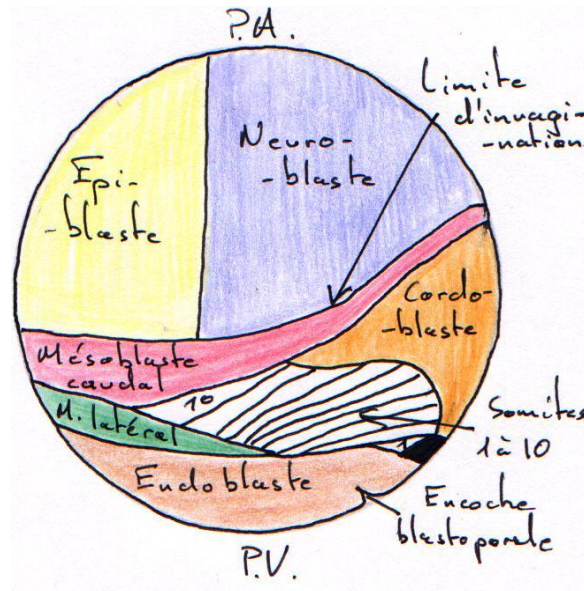 P.A.
Limite
d'invagi-
-nation
Neuro-
-blaste
Epi-
-blaste
Cordo-
-blaste
Mésoblaste
caudal
10
M. latéral
Somites
1 à 10
1
Endoblaste
Encoche
blastoporale
P.V.